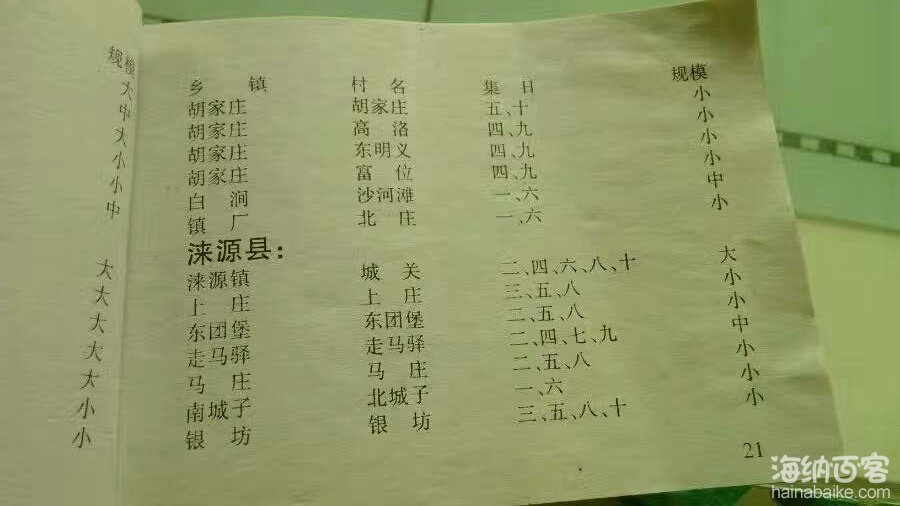 规模
大
中
大
小
小
中
大
大
大
大
大
小
小
乡 镇 村 名 集 日 规模
胡家庄 胡家庄 五、十 小
胡家庄 高 洛 四、九 小
胡家庄 东明义 四、九 小
胡家庄 富 位 四、九 小
白 涧 沙河滩 一、六 中
镇 厂 北 庄 一、六 小
涞源县：
涞源镇 城 关 二、四、六、八、十 大
上 庄 上 庄 三、五、八 小
东团堡 东团堡 二、五、八 小
走马驿 走马驿 二、四、七、九 中
马 庄 马 庄 二、五、八 小
南城子 北城子 一、六 小
银 坊 银 坊 三、五、八、十 小
21
海纳百客
hainabaike.com